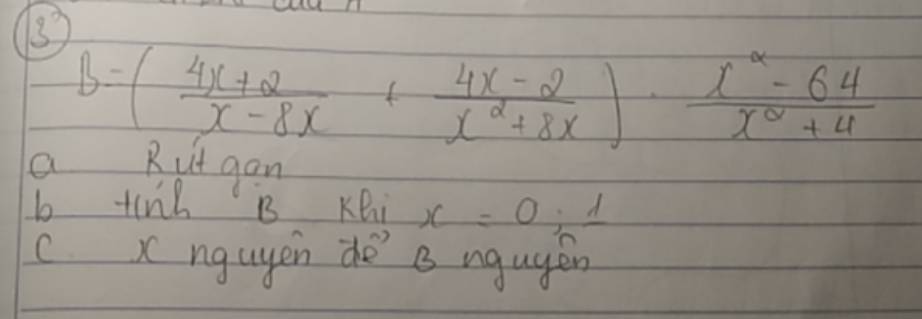 3
B = ( \frac{4x+2}{x-8x} + \frac{4x-2}{x^2+8x} ) . \frac{x^2-64}{x^2+4}
a Rút gọn
b tính B khi x = 0; 1
c x nguyên để B nguyên